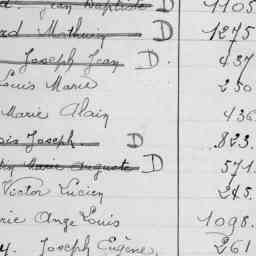 Jean Baptiste D 1105
rd Mathurin D 1275
Joseph Jean D. 437
Louis Marie 250
Marie Alain 436
Joseph D 823.
Marie Auguste D 571.
Victor Lucien 245.
rie Ange Louis 1098.
y. Joseph Eugène, 261